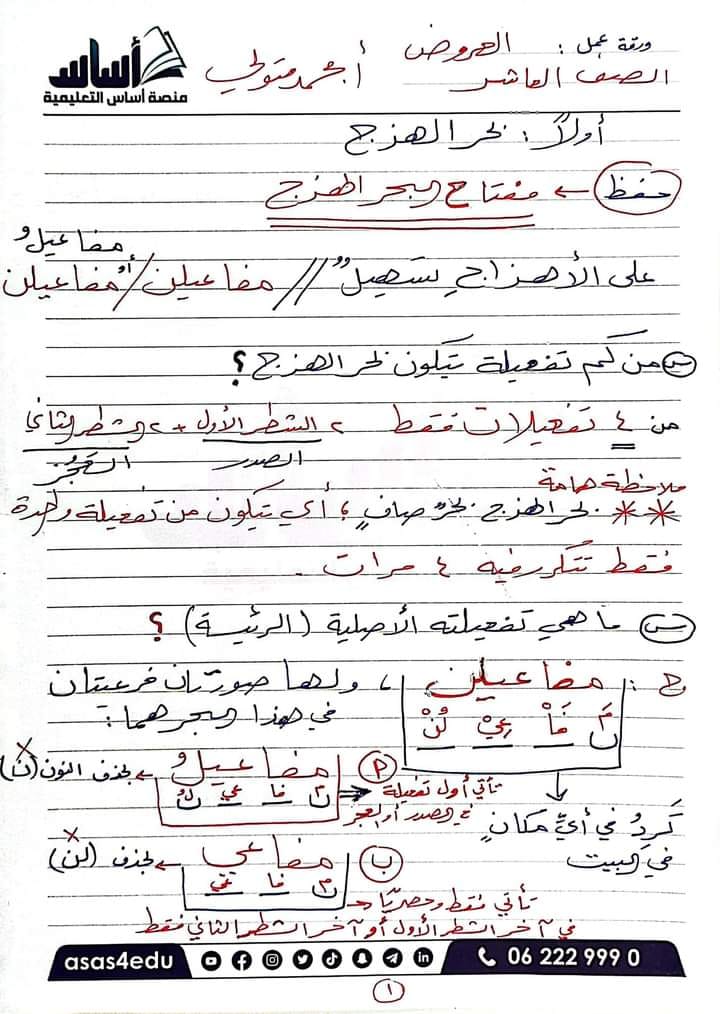 ورقة عمل : العروض
الصف العاشر
أ. محمد متولي
أساس
منصة أساس التعليمية
أولاً : بحر الهزج
حفظ ← مفتاح البحر الهزج
مفاعيلُ
على الأهزاجِ تسهيلٌ // مفاعيلن / أو مفاعيلن
س من كم تفعيلة يتكون بحر الهزج ؟
من ٤ تفعيلات فقط ٢ الشطر الأول + ٢ الشطر الثاني
الصدر العَجُز
ملاحظة هامة
** بحر الهزج بحرٌ صافٍ ؛ أي يتكون من تفعيلة واحدة
فقط تتكرر فيه ٤ مرات .
س ما هي تفعيلته الأصلية (الرئيسة) ؟
ج : مفاعيلن ، ولها صورتان فرعيتان
مَ فَاْ عِيْ لُنْ
في هذا البحر هما :
أ مفاعيلُ ← بحذف النون (ن)
مَ فا عي لُ
تأتي أول تفعيلة
في الصدر أو العجز
تَرِدُ في أيِّ مكانٍ
في البيت
ب مفاعي ← بحذف (لن)
مَ فا عي
تأتي فقط وحصريًا
في آخر الشطر الأول أو آخر الشطر الثاني فقط
asas4edu
06 222 999 0
١